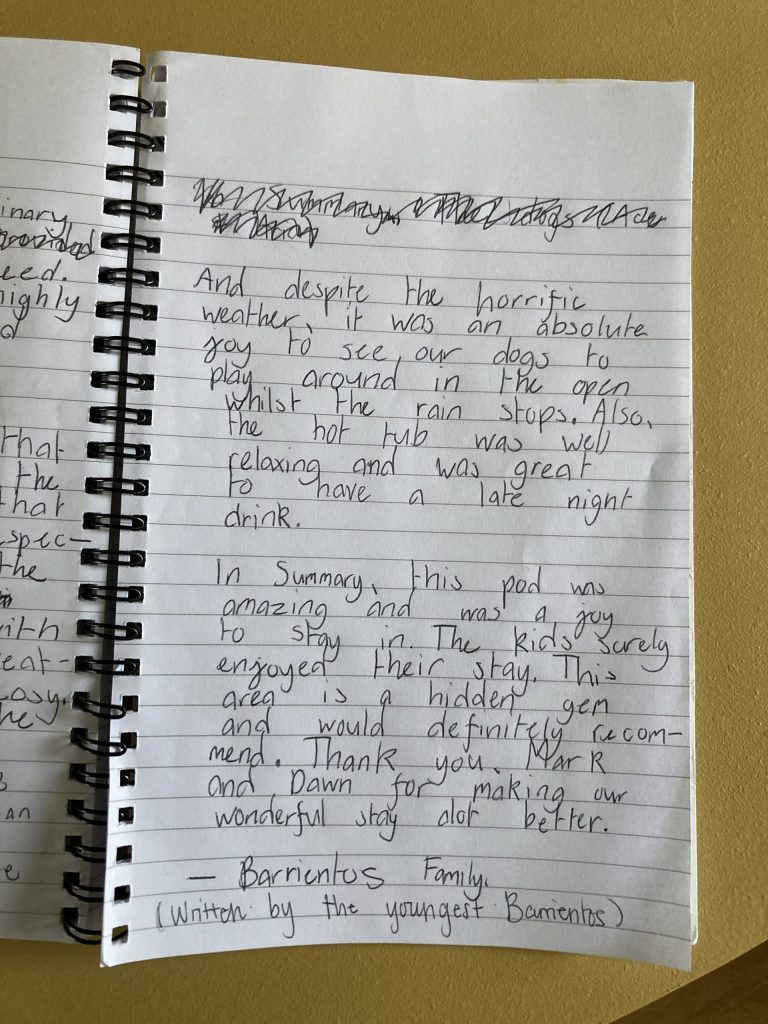 inary
eed.
highly
d
that
the
that
espec-
the
ith
eat-
cosy.
he
an
e
And despite the horrific
weather, it was an absolute
joy to see our dogs to
play around in the open
whilst the rain stops. Also,
the hot tub was well
relaxing and was great
to have a late night
drink.
In Summary, this pod was
amazing and was a joy
to stay in. The kids surely
enjoyed their stay. This
area is a hidden gem
and would definitely recom-
mend. Thank you, Mark
and Dawn for making our
wonderful stay alot better.
— Barrientos Family.
(Written by the youngest Barrientos)